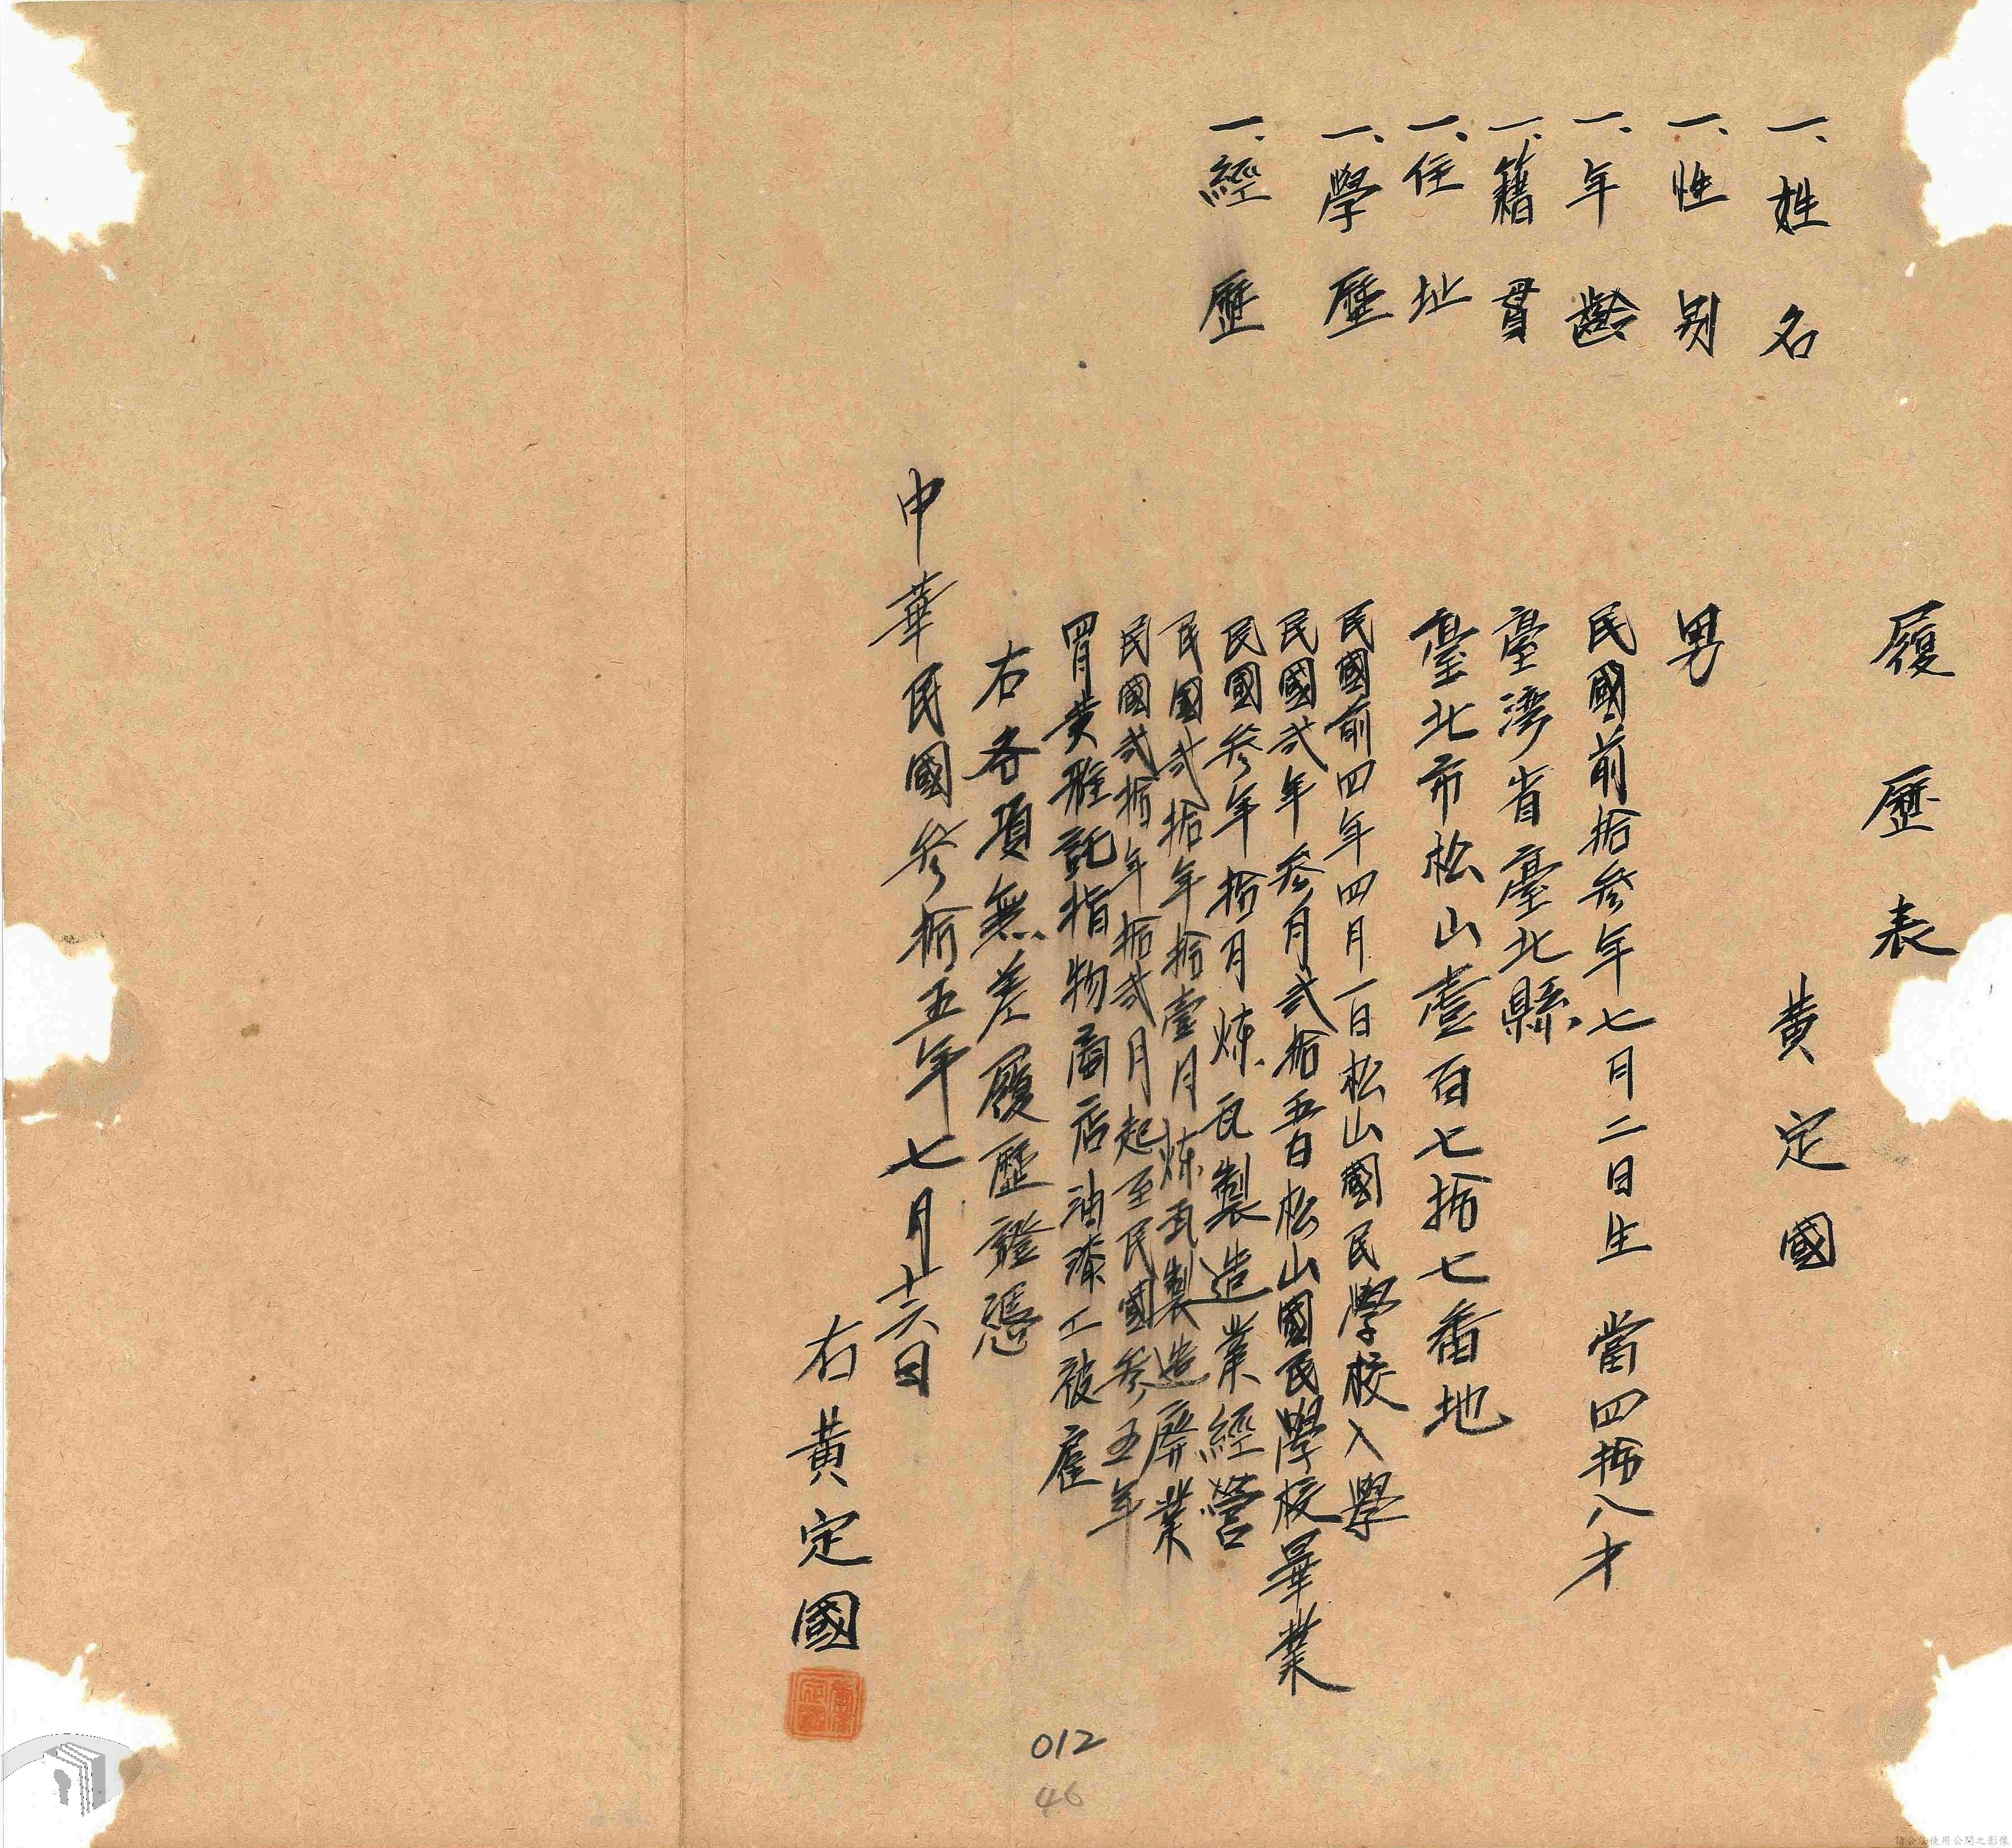 履歷表
一、姓名 黄定國
一、性别 男
一、年齡 民國前拾參年七月二日生 當四拾八才
一、籍貫 臺湾省臺北縣
一、住址 臺北市松山壹百七拾七番地
一、學歷 民國前四年四月一日松山國民學校入學
民國弍年參月弍拾五日松山國民學校畢業
一、經歷 民國參年拾月炼瓦製造業經營
民國弍拾年拾壹月炼瓦製造廃業
民國弍拾年拾弍月起至民國參五年
四月黄雅託指物商店油漆工被雇
右各項無差履歷證憑
中華民國參拾五年七月廿六日
右黄定國
012
46